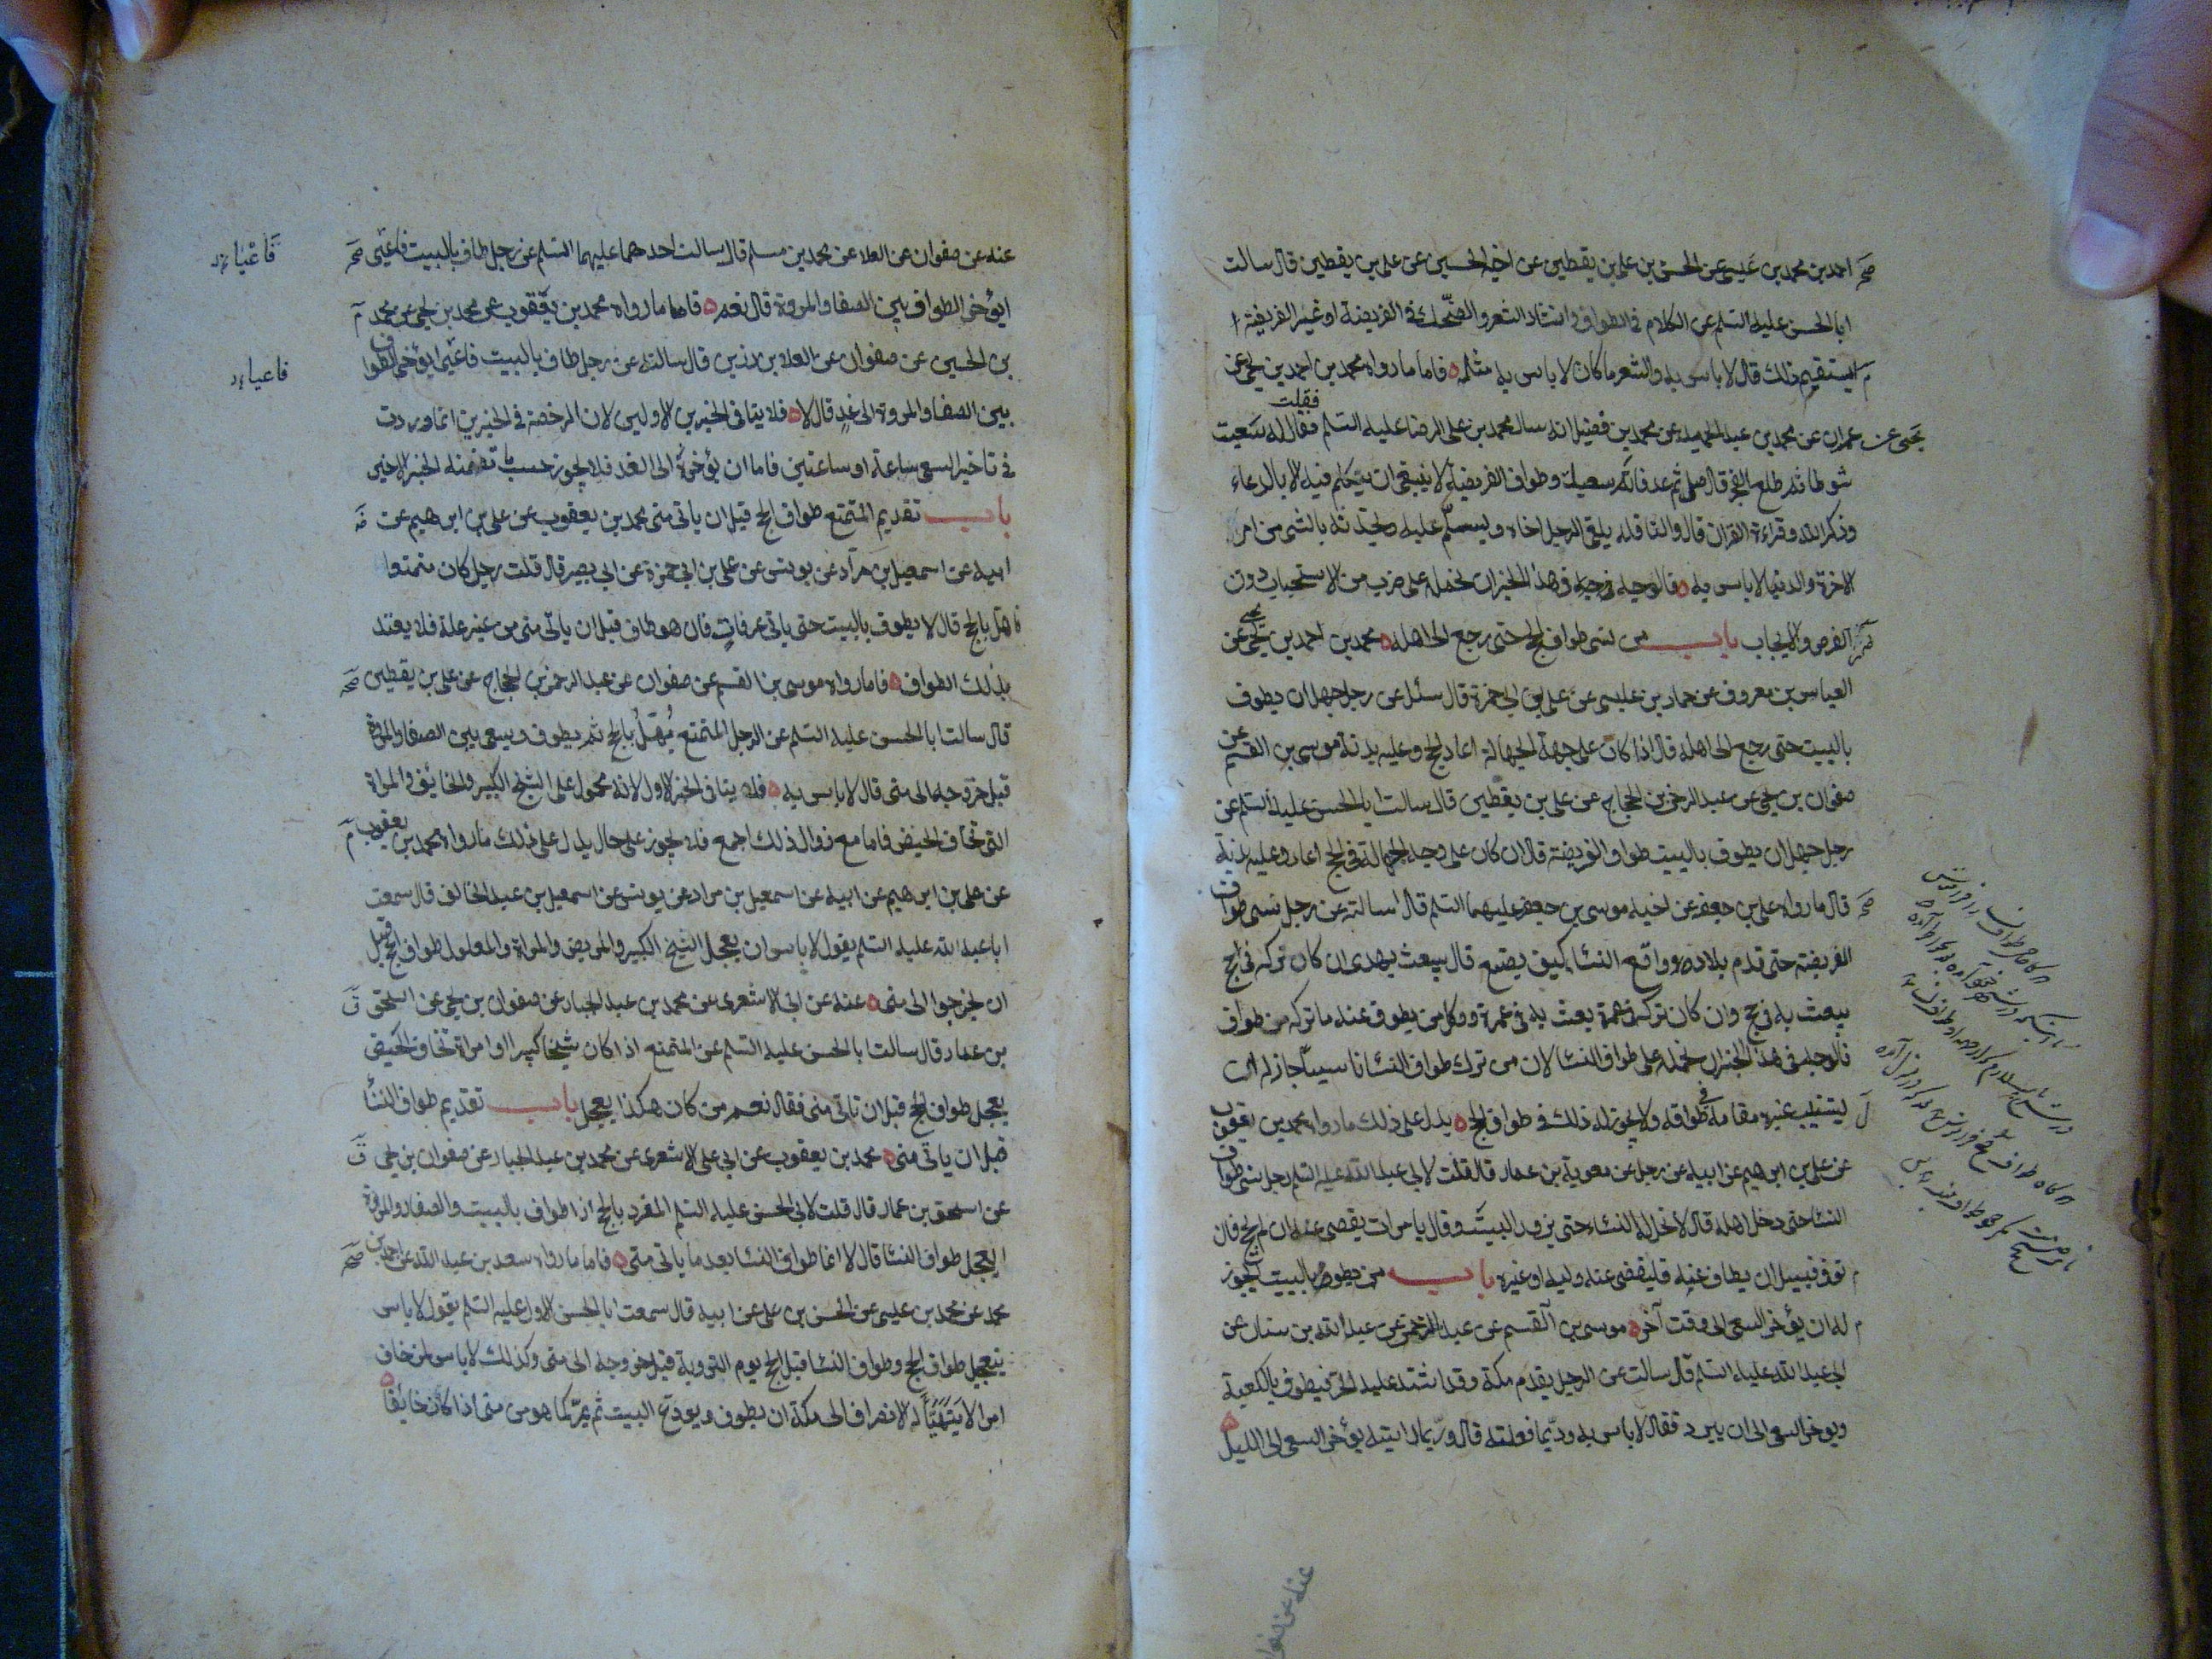 احمد بن محمد بن عيسى عن الحسن بن علي بن يقطين عن اخيه الحسين عن علي بن يقطين قال سالت
ابا الحسن عليه السلم عن الكلام في الطواف وانشاد الشعر والضحك في الفريضة او غير الفريضة ا
ايستقيم ذلك قال لا باس به والشعر ما كان لا باس به مثله فاما ما رواه محمد بن احمد بن يحيى عن
يحيى عن عمران عن محمد بن عبد الحميد عن محمد بن فضيل انه سال محمد بن علي الرضا عليه السلم فقال له سعيت
فقلت
شوطا ثم طلع الفجر قال صل ثم عد فاتم سعيك وطواف الفريضة لا ينبغي ان يتكلم فيه الا بالدعاء
وذكر الله وقراءة القران قال والنافلة يلقى الرجل اخاه ويسلم عليه ويحدثه بالشي من امر
الاخرة والدنيا لا باس به فالوجه في هذا الخبر ان نحمله على ضرب من الاستحباب دون
الفرض والايجاب باب من نسى طواف الحج حتى رجع الى اهله محمد بن احمد بن يحيى عن
العباس بن معروف عن حماد بن عيسى عن علي بن ابي حمزة قال سئل عن رجل جهل ان يطوف
بالبيت حتى رجع الى اهله قال اذا كان على جهة الجهالة اعاد الحج وعليه بدنة موسى بن القسم عن
صفوان بن يحيى عن عبد الرحمن بن الحجاج عن علي بن يقطين قال سالت ابا الحسن عليه السلم عن
رجل جهل ان يطوف بالبيت طواف الفريضة قال ان كان على وجه الجهالة في الحج اعاد وعليه بدنة
قال ما رواه علي بن جعفر عن اخيه موسى بن جعفر عليهما السلم قال سالته عن رجل نسى طواف
الفريضة حتى قدم بلاده وواقع النسا كيف يصنع قال يبعث بهدى ان كان تركه في حج
يبعث به في حج وان كان تركه في عمرة بعث به في عمرة ووكل من يطوف عنه ما تركه من طوافه
فالوجه في هذا الخبر ان نحمله على طواف النسا لان من ترك طواف النسا ناسيا جاز له ان
يستنيب غيره مقامه في طوافه ولا يجوز له ذلك في طواف الحج يدل على ذلك ما رواه محمد بن يعقوب
عن علي بن ابراهيم عن ابيه عن رجل عن معوية بن عمار قال قلت لابي عبد الله عليه السلم رجل نسى طواف
النسا حتى دخل اهله قال لا تحل له النساء حتى يزور البيت وقال يامر ان يقضى عنه ان لم يحج فان
توفى قبل ان يطاف عنه فليقض عنه وليه او غيره باب من يطوف بالبيت ايجوز
له ان يؤخر السعى الى وقت آخر موسى بن القسم عن عبد الرحمن عن عبد الله بن سنان عن
ابي عبد الله عليه السلم قال سالت عن الرجل يقدم مكة وقد اشتد عليه الحر فيطوف بالكعبة
ويوخر السعى الى ان يبرد فقال لا باس به وربما فعلته قال وربما رايته يؤخر السعى الى الليل
عنه عن صفوان
عنه عن صفوان عن العلا عن محمد بن مسلم قال سالت احدهما عليهما السلم عن رجل طاف بالبيت فاعيى
ايؤخر الطواف بين الصفا والمروة قال نعم فاما ما رواه محمد بن يعقوب عن محمد بن يحيى عن محمد
بن الحسين عن صفوان عن العلا بن رزين قال سالته عن رجل طاف بالبيت فاعيى ايؤخر الطواف
بين الصفا والمروة الى غد قال لا فلا ينافى الخبرين الاولين لان الرخصة في الخبرين انما وردت
في تاخير السعى ساعة او ساعتين فاما ان يؤخره الى الغد فلا يجوز حسب ما تضمنه الخبر الاخير
باب تقديم المتمتع طواف الحج قبل ان ياتى منى محمد بن يعقوب عن علي بن ابرهيم عن
ابيه عن اسمعيل بن مرار عن يونس عن علي بن ابي حمزة عن ابي بصير قال قلت رجل كان متمتعا
فاهل بالحج قال لا يطوف بالبيت حتى ياتى عرفات فان هو طاف قبل ان ياتى منى من غير علة فلا يعتد
بذلك الطواف فاما رواه موسى بن القسم عن صفوان عن عبد الرحمن بن الحجاج عن علي بن يقطين
قال سالت ابا الحسن عليه السلم عن الرجل المتمتع يهل بالحج ثم يطوف ويسعى بين الصفا والمروة
قبل خروجه الى منى قال لا باس به فلا ينافى الخبر الاول لانه محمول على الشيخ الكبير والخائف والمراة
التي تخاف الحيض فاما مع زوال ذلك اجمع فلا يجوز على حال يدل على ذلك ما رواه محمد بن يعقوب
عن علي بن ابرهيم عن ابيه عن اسمعيل بن مراد عن يونس عن اسمعيل بن عبد الخالق قال سمعت
ابا عبد الله عليه السلم يقول لا باس ان يعجل الشيخ الكبير والمريض والمراة والمعلول طواف الحج قبل
ان يخرجوا الى منى عنه عن ابي الاشعرى عن محمد بن عبد الجبار عن صفوان بن يحيى عن اسحق
بن عمار قال سالت ابا الحسن عليه السلم عن المتمتع اذا كان شيخا كبيرا او امراة تخاف الحيض
يعجل طواف الحج قبل ان تاتى منى فقال نعم من كان هكذا يعجل باب تقديم طواف النسا
قبل ان ياتى منى محمد بن يعقوب عن ابي علي الاشعرى عن محمد بن عبد الجبار عن صفوان بن يحيى
عن اسحق بن عمار قال قلت لابي الحسن عليه السلم المفرد بالحج اذا طواف بالبيت والصفا والمروة
ايعجل طواف النسا قال لا انما طواف النسا بعد ما ياتى منى فاما ما رواه سعد بن عبد الله عن احمد بن
محمد عن محمد بن عيسى عن الحسن بن علي عن ابيه قال سمعت ابا الحسن الاول عليه السلم يقول لا باس
بتعجيل طواف الحج وطواف النسا قبل الحج يوم التروية قبل خروجه الى منى وكذلك لا باس لمن خاف
امرا لا يتهيا له الانصراف الى مكة ان يطوف ويودع البيت ثم يمر كما هو من منى اذا كان خائفا
فاعيا
فاعيا